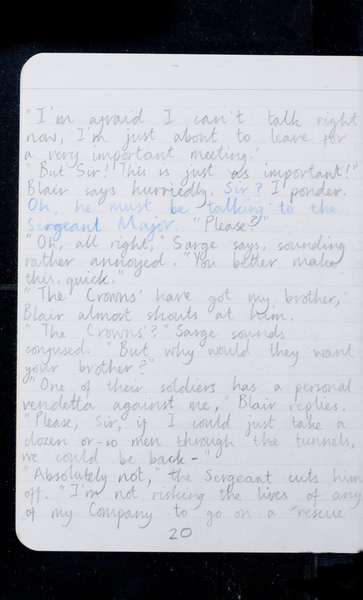 "I'm afraid I can't talk right
now, I'm just about to leave for
a very important meeting."
"But Sir! This is just as important!"
Blair says hurriedly. Sir? I ponder.
Oh, he must be talking to the
Sergeant Major. "Please?"
"Oh, all right," Sarge says, sounding
rather annoyed. "You better make
this quick."
"The 'Crowns' have got my brother,"
Blair almost shouts at him.
"The 'Crowns'?" Sarge sounds
confused. "But why would they want
your brother?"
"One of their soldiers has a personal
vendetta against me," Blair replies.
"Please, Sir, if I could just take a
dozen or-so men through the tunnels,
we could be back-"
"Absolutely not," the Sergeant cuts him
off. "I'm not risking the lives of any
of my Company to go on a "rescue
20